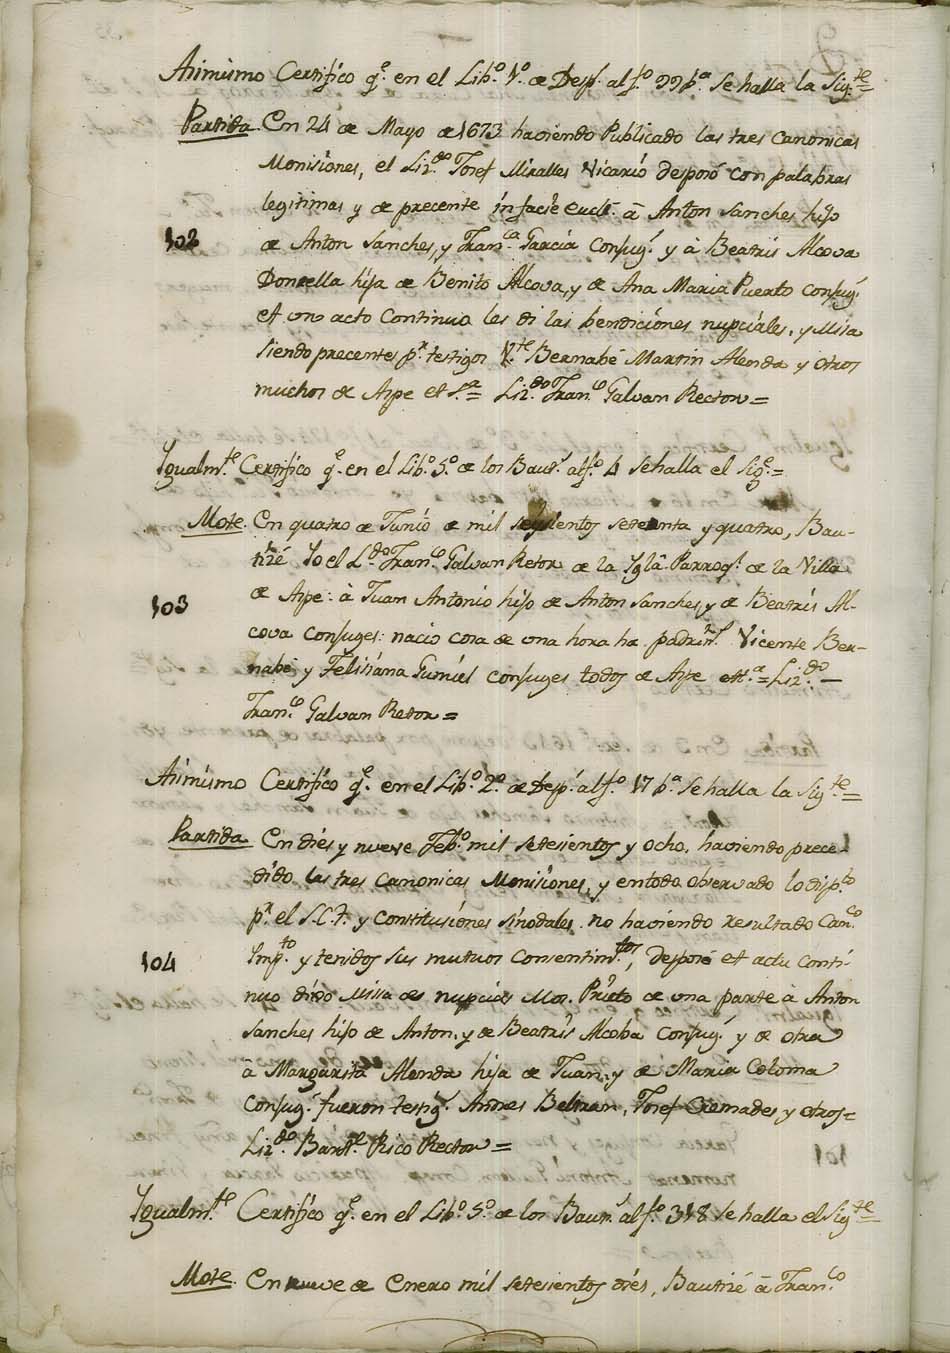 Asimismo Certifico q.e en el Lib.o 1.o de Desp.s al f.o 99 b.a se halla la Sig.te =
Partida. En 24 de Mayo de 1673 haviendo Publicado las tres canonicas
Monisiones, el Liz.do Josef Miralles Vicario desposó con palabras
legitimas y de precente in facie eccle. â Anton Sanches hijo
102
de Anton Sanches, y Fran.ca Garcia Conjug.s y à Beatris Alcova
Donsella hija de Benito Alcova, y de Ana Maria Puerto conjug.s
et uno acto Continuo les di las bendiciones nupciales, y Misa
siendo precentes p.r testigos V.te Bernabé Martin Alenda y otros
muchos de Aspe et S.a = Liz.do Fran.co Galvan Rector =
Igualm.te Certifico q.e en el Lib.o 5.o de los Baut.s al f.o 4 se halla el Sig.e =
Mote. En quatro de Junio de mil seysientos setenta y quatro, Bau-
tizé Yo el L.do Fran.co Galvan Retor de la Yglâ Parroq.l de la Villa
103
de Aspe: à Juan Antonio hijo de Anton Sanches, y de Beatris Al-
cova Conjuges: nacio cosa de una hora ha padrin.s Vicente Ber-
nabé y Felisiana Gumiel conjuges todos de Aspe ett.a = Liz.do —
Fran.co Galvan Retor =
Asimismo Certifico q.e en el Lib.o 2.o de Desp.s al f.o 17 b.a se halla la Sig.te =
Partida. En dies y nueve Feb.o mil setesientos y ocho, haviendo prece-
dido las tres canonicas Monisiones, y en todo observado lo disp.to
p.r el S.C.T. y constitusiones sinodales. no haviendo resultado Can.co
104
Imp.to y tenidos sus mutuos consentim.tos, desposé et actu conti-
nuo dixo Misa de nupcias Mos. Prieto de una parte à Anton
Sanches hijo de Anton, y de Beatris Alcoba Conjug.s y de otra
â Margarita Alenda hija de Juan, y de Maria Coloma
Conjug.s fueron testig.s Andres Beltran, Josef Cremades y otros =
Liz.do Bart.e Rico Rector =
Igualm.te Certifico q.e en el Lib.o 5.o de los Baut.s al f.o 318 se halla el Sig.te =
Mote. En nueve de Enero mil setesientos dies, Bautizé â Fran.co